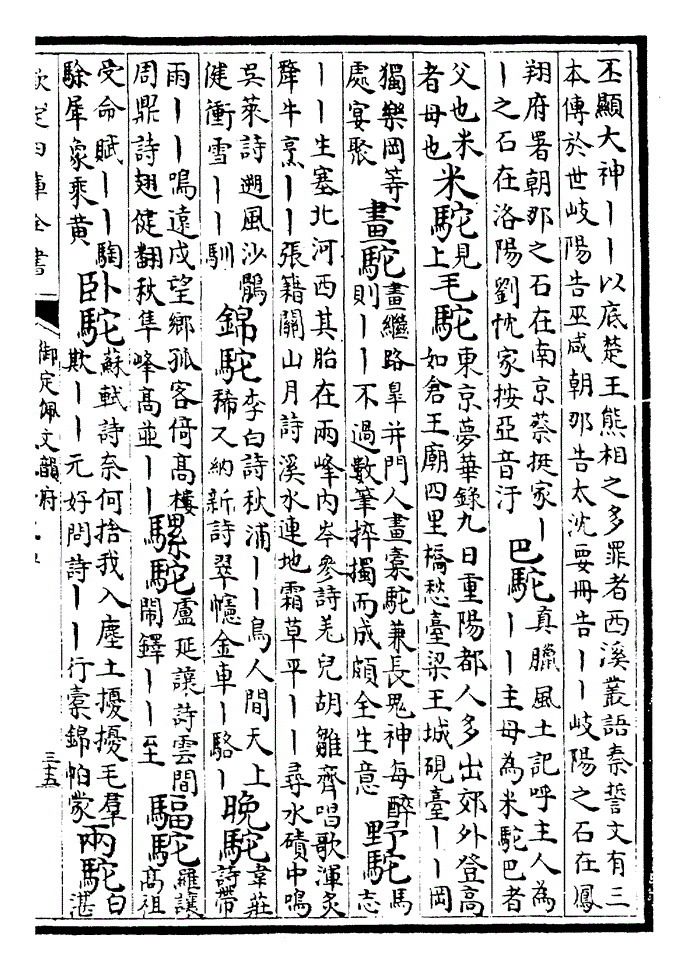 丕顯大神丨丨以底楚王熊相之多罪者西溪叢語秦誓文有三
本傳於世岐陽告巫咸朝那告太沈要冊告丨丨岐陽之石在鳳
翔府署朝那之石在南京蔡挺家丨
丨之石在洛陽劉忱家按亞音汙
巴駝
真臘風土記呼主人為
丨丨主母為米駝巴者
父也米
者母也
米駝
見
上
毛駝
東京夢華錄九日重陽都人多出郊外登高
如倉王廟四里橋愁臺梁王城硯臺丨丨岡
獨樂岡等
處宴聚
畫駝
畫繼路皋并門人畫橐駝兼長鬼神每醉
則丨丨不過數筆捽擉而成頗全生意
野駝
馬
志
丨丨生塞北河西其胎在兩峰內岑參詩羌兒胡雛齊唱歌渾炙
犛牛烹丨丨張籍關山月詩溪水連地霜草平丨丨尋水磧中鳴
吳萊詩遡風沙鶻
健衝雪丨丨馴
錦駝
李白詩秋浦丨丨鳥人間天上
稀又納新詩翠幰金車丨駱丨
晚駝
韋莊
詩帶
雨丨丨鳴遠戍望鄉孤客倚高樓
周鼎詩翅健翻秋隼峰高並丨丨
騾駝
盧延讓詩雲間
鬧鐸丨丨至
騙駝
羅讓
高祖
受命賦丨丨騊
駼犀象乘黃
卧駝
蘇軾詩奈何捨我入塵土擾擾毛羣
欺丨丨元好問詩丨丨行橐錦帕蒙
兩駝
白
湛
欽定四庫全書
御定佩文韻府
三五